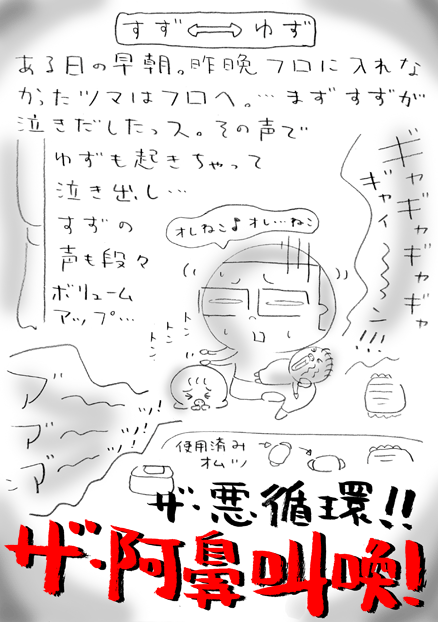 すず⟺ゆず
ある日の早朝。昨晩フロに入れな
かったツマはフロへ。…まずすずが
泣きだしたっス。その声で
ゆずも起きちゃって
泣き出し…
すずの
声も段々
ボリューム
アップ…
オレねこ♪オレ…ねこ
ギャギャギャギャ
ギャイーーン!!!
トントントン
アーーッ!
アーーッ!
アーーッ!
使用済み
オムツ
ザ・悪循環!!
ザ・阿鼻叫喚!